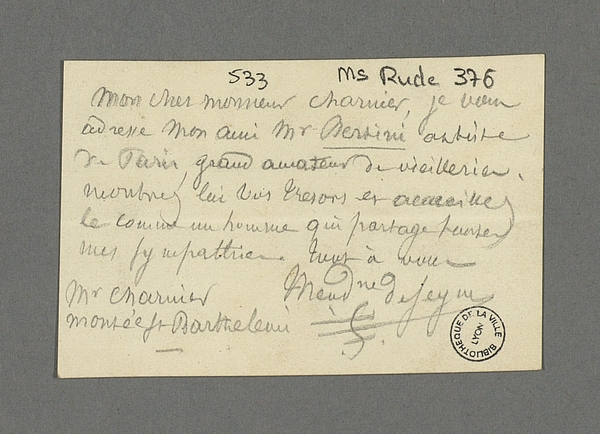 533 Ms Rude 376
Mon cher monsieur Charnier, je vous
adresse mon ami Mr Bersini artiste
de Paris, grand amateur de vieilleries.
montrez lui vos tresors et accueillez
le comme un homme qui partage toutes
mes sympathies. tout à vous
Mr Charnier
montée St Barthelemi
BIBLIOTHEQUE DE LA VILLE
LYON